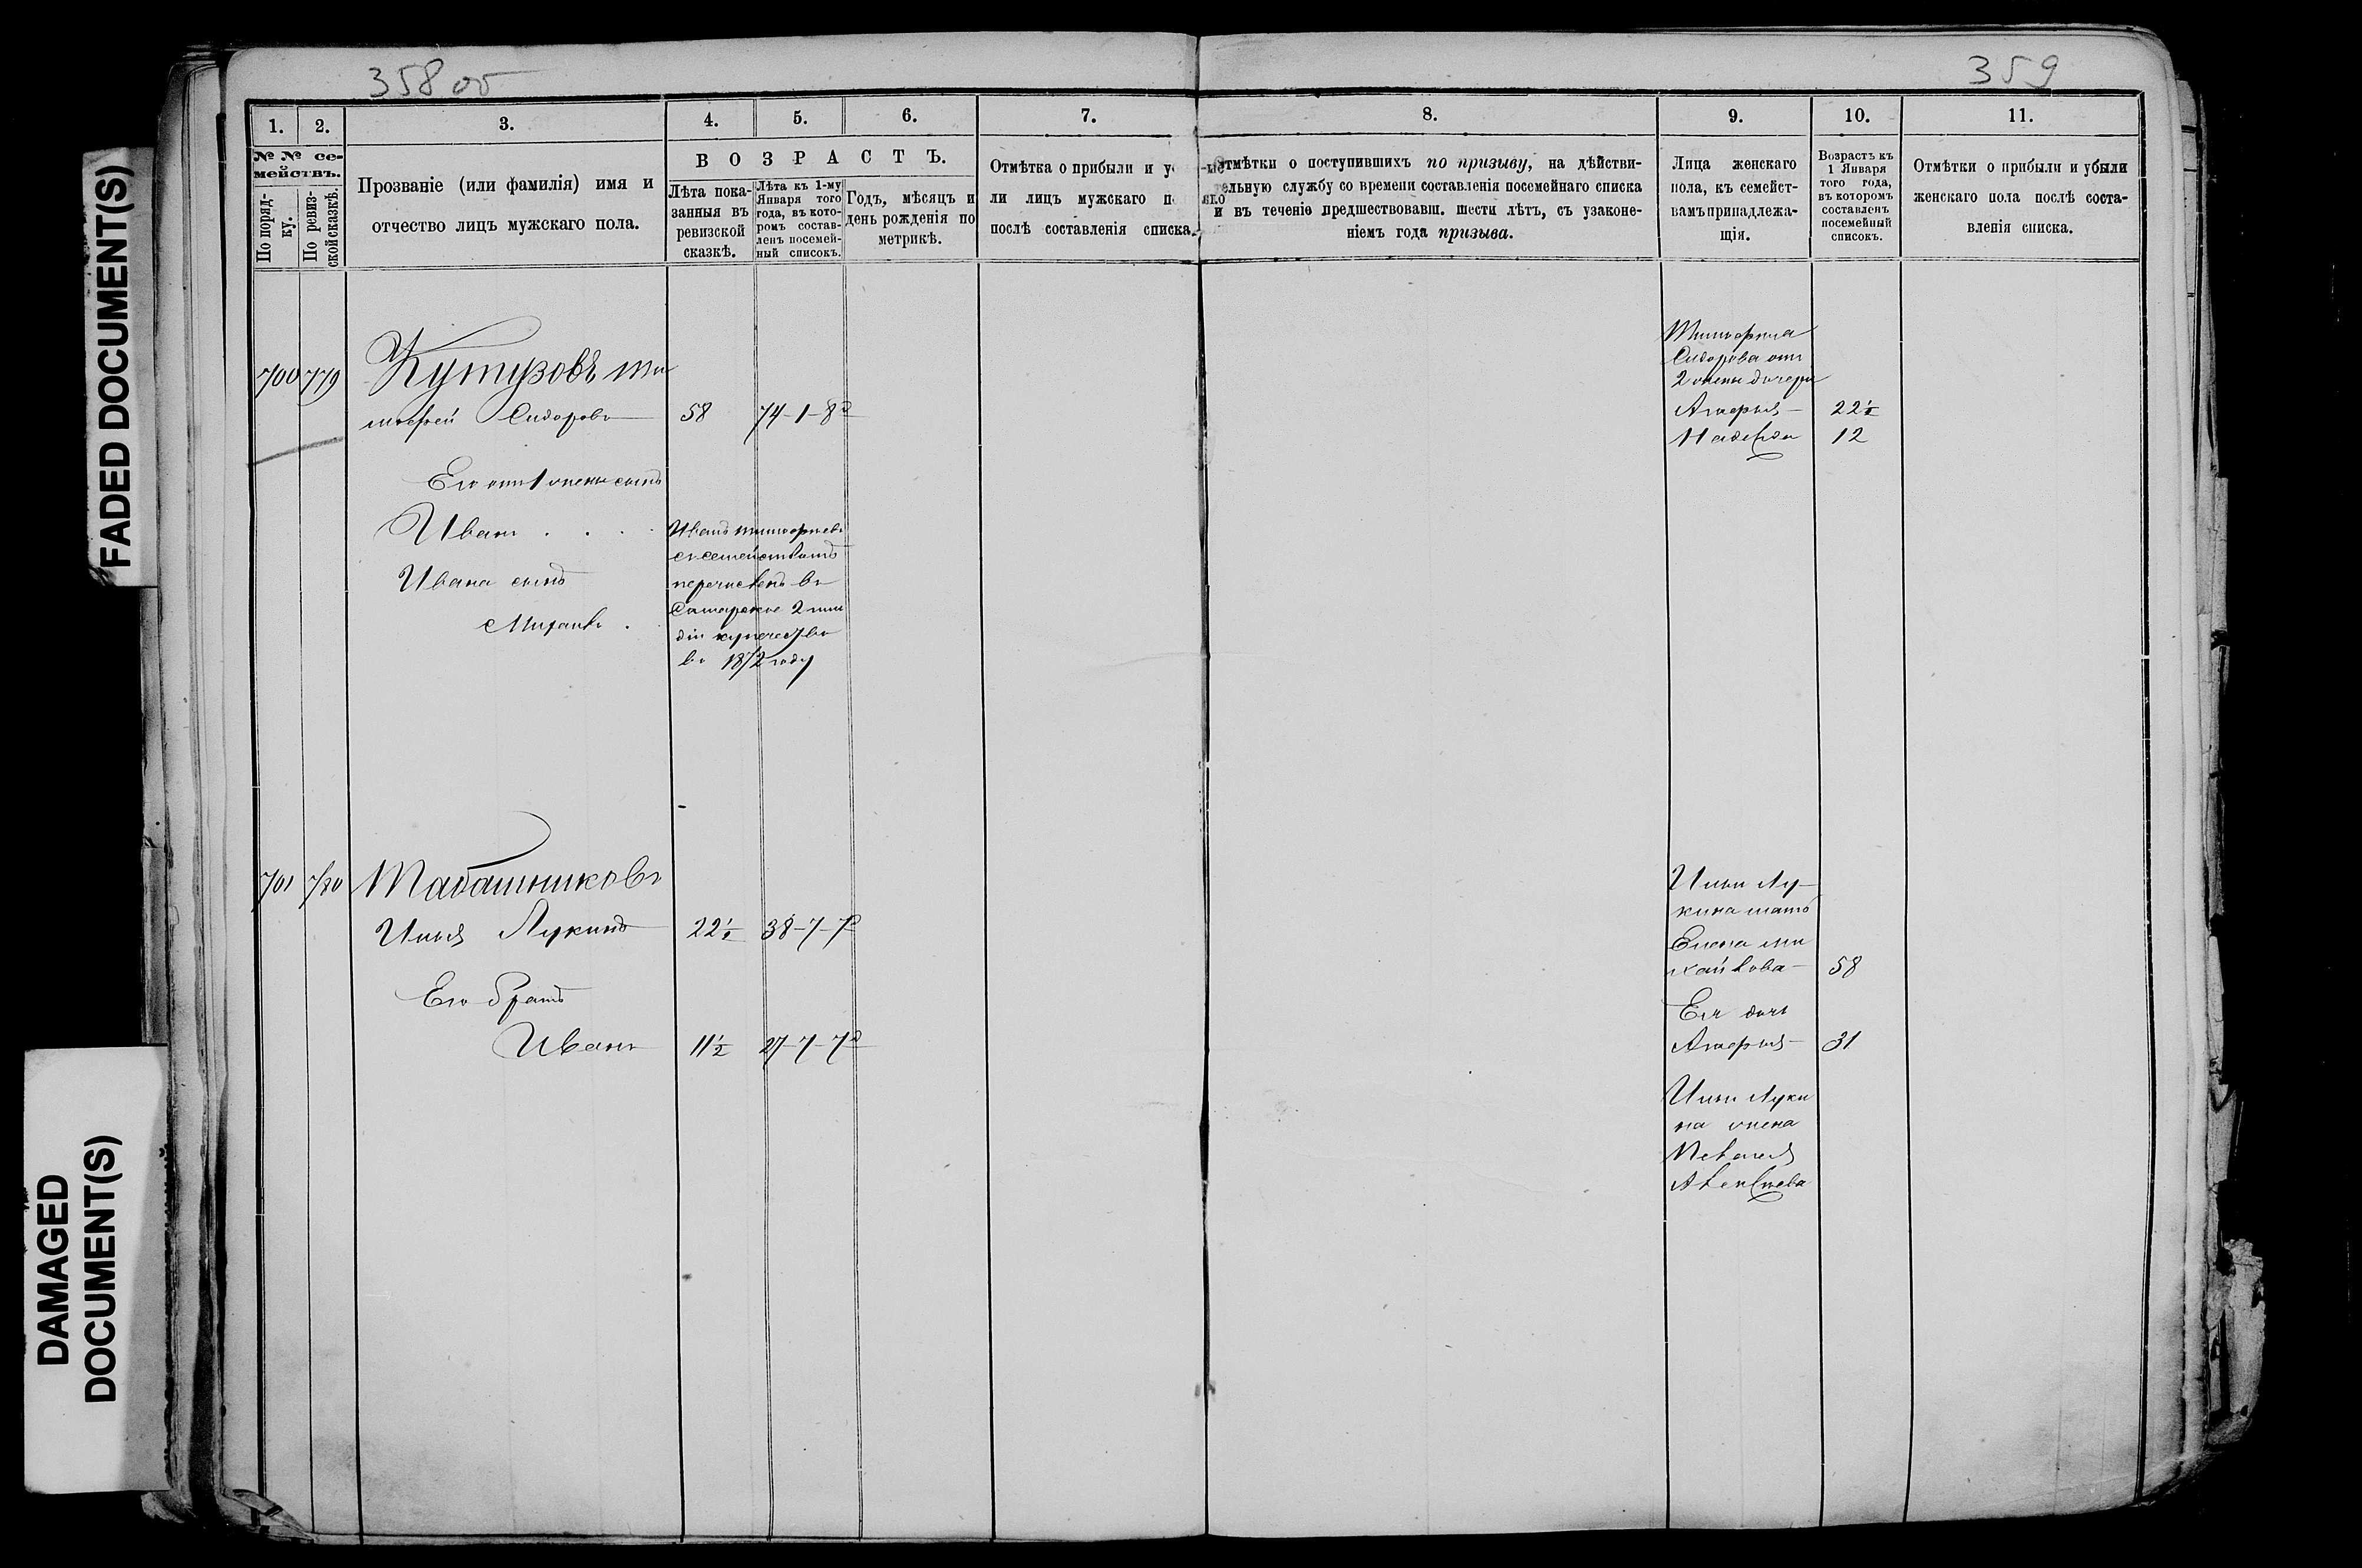 358 об
359
FADED DOCUMENT(S)
DAMAGED
DOCUMENT(S)
1.
2.
3.
4.
5.
6.
7.
8.
9.
10.
11.
№ № се-
мействъ.
По поряд-
ку.
По ревиз-
ской сказкѣ.
Прозваніе (или фамилія) имя и
отчество лицъ мужскаго пола.
ВОЗРАСТЪ.
Лѣта пока-
занныя въ
ревизской
сказкѣ.
Лѣта къ 1-му
Января того
года, въ кото-
ромъ состав-
ленъ посемей-
ный списокъ.
Годъ, мѣсяцъ и
день рожденія по
метрикѣ.
Отмѣтка о прибыли и у
ли лицъ мужскаго п
послѣ составленія списка.
Отмѣтки о поступившихъ по призыву, на дѣйстви-
тельную службу со времени составленія посемейнаго списка
и въ теченіе предшествовавш. шести лѣтъ, съ узаконе-
ніемъ года призыва.
Лица женскаго
пола, къ семейст-
вамъ принадлежа-
щія.
Возрастъ къ
1 Января
того года,
въ которомъ
составленъ
посемейный
списокъ.
Отмѣтки о прибыли и убыли
женскаго пола послѣ соста-
вленія списка.
700 779 Кутузовъ Ти
мофей Сидоровъ 58 74-1-8
Его отъ 1 жены сынъ
Иванъ . . . .
Ивана сынъ
Михаилъ .
Иванъ Тимофеевъ
съ семействомъ
перечисленъ въ
Самарское 2 гиль
діи купечество
въ 1872 году
Тимофея
Сидорова отъ
2 жены дочери
Агафья 22½
Надежда 12
701 780 Табашниковъ
Илья Лукинъ 22½ 38-7-7
Его братъ
Иванъ 11½ 27-7-7
Ильи Лу-
кина мать
Елена Ми
хайлова 58
Ея дочь
Агафья 31
Ильи Луки
на жена
Пелагея
Алексѣева